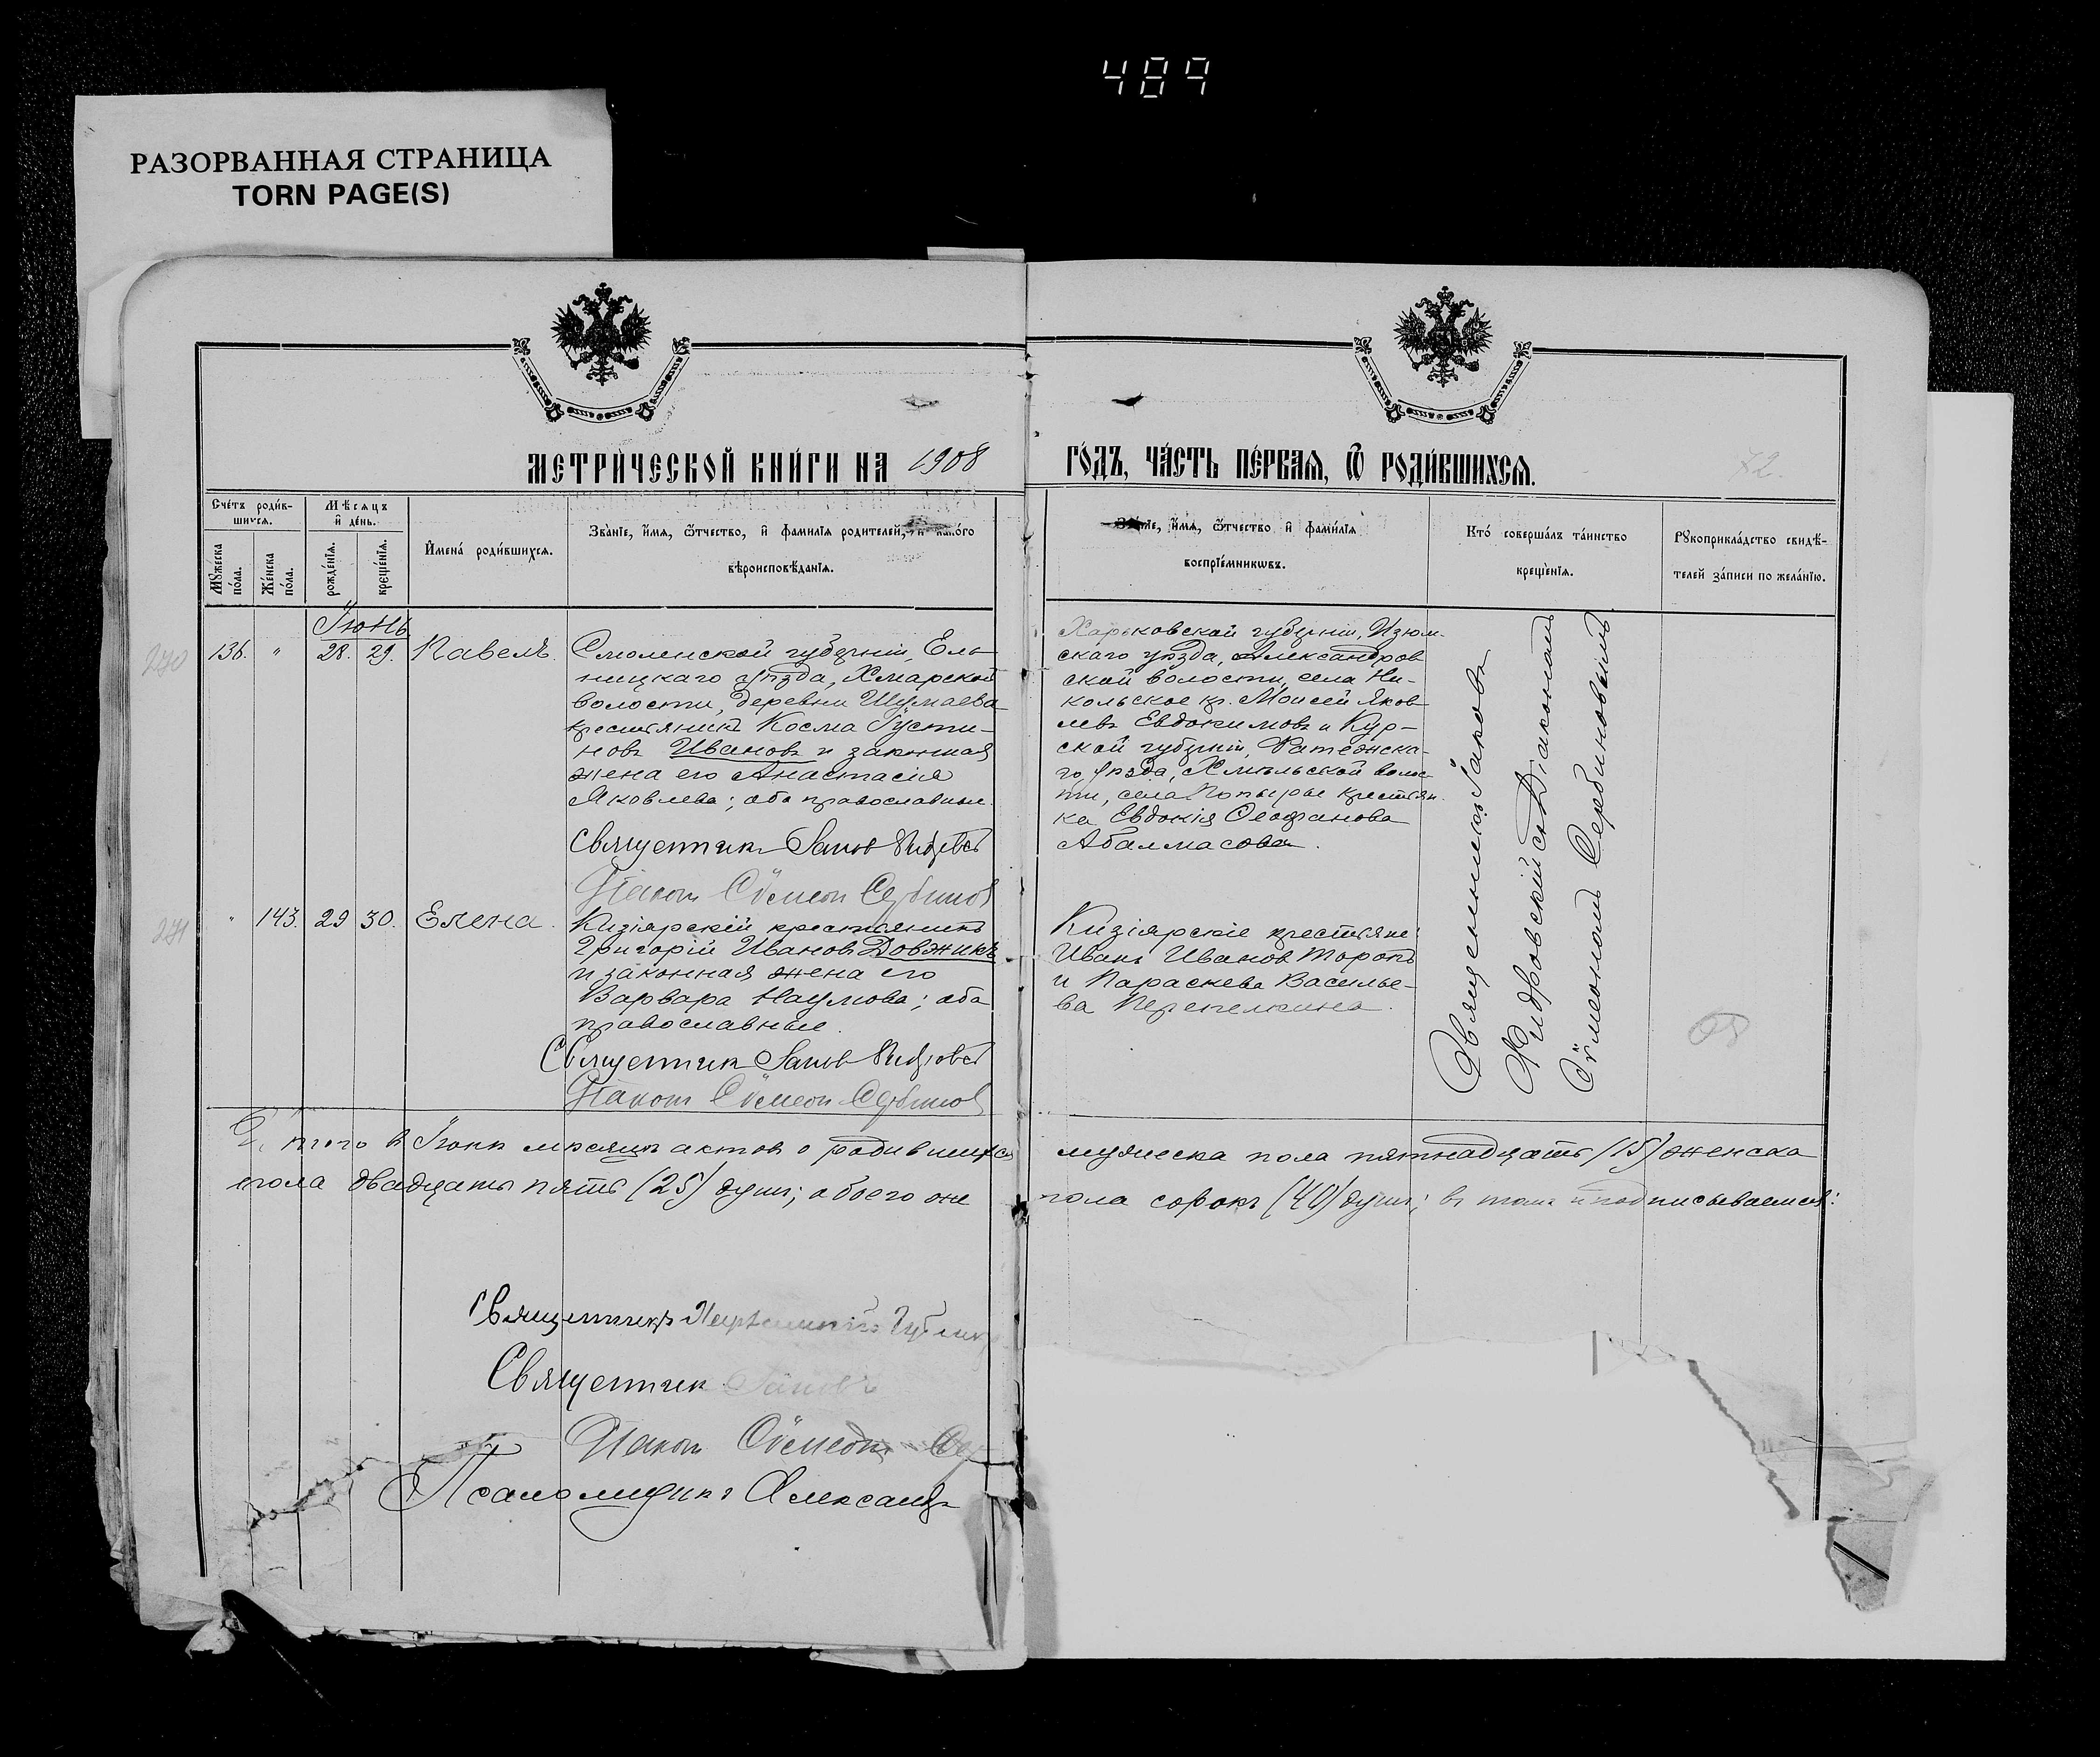 489
РАЗОРВАННАЯ СТРАНИЦА
TORN PAGE(S)
МЕТРИ́ЧЕСКОЙ КНИ́ГИ НА 1908
ГО́ДЪ, ЧА́СТЬ ПЕ́РВАЯ, Ѿ РОДИ́ВШИХСЯ.
72.
Сче́тъ роди́в-
шихся.
Мѣсяцъ
и де́нь.
Му́жеска
по́ла.
Же́нска
по́ла.
рожде́нїя.
креще́нїя.
И҆мена̀ роди́вшихся.
Зва́нїе, и҆мя, ѻ҆тчество, и҆ фами́лїя родителей, и҆ како́го
вѣроисповѣ́данїя.
Зва́нїе, и҆мя, ѻ҆тчество и҆ фами́лїя
воспрїе́мникѡвъ.
Кто́ соверша́лъ та́инство
креще́нїя.
Рꙋкоприкла́дство свидѣ́-
телей за́писи по жела́нїю.
Іюнь
270
136. " 28. 29. Павелъ.
Смоленской губерніи, Ель-
ницкаго уѣзда, Хмарской
волости, деревни Шумаева
крестьянинъ Косма Густи-
новъ Ивановъ и законная
жена его Анастасія
Яковлева; оба православные.
Священникъ Іаковъ
Діаконъ Сѵмеонъ Сербинов
Харьковской губерніи, Изюм-
скаго уѣзда, Александров
ской волости, села Ни-
кольское кр. Моисей Яков
левъ Евдокимовъ и Кур-
ской губерніи,
го уѣзда, Хмѣльской волос
ти, села Попырье крестьян.
ка Евдокія Ѳеофанова
Абалмасова.
271
" 143. 29 30. Елена.
Кизіярскій крестьянинъ
Григорій Иванов Довжикъ
и законная жена его
Варвара Наумова; оба
православные.
Священникъ Іаковъ
Діаконъ Сѵмеонъ Сербинов
Кизіярскіе крестьяне:
Иванъ Иванов Торопъ
и Параскева Василье-
ва Перепелкина.
Священникъ Іаковъ
съ Діакономъ
Сѵмеономъ Сербиновымъ
того въ Іюнѣ мѣсяцѣ актовъ о родившихся мужеска пола пятнадцать (15) женска
пола двадцать пять (25) душъ; обоего же пола сорокъ (40) душъ; въ томъ и подписываемся:
Священникъ
Священникъ Іаковъ
Діаконъ Сѵмеонъ Сер
Псаломщикъ Александръ